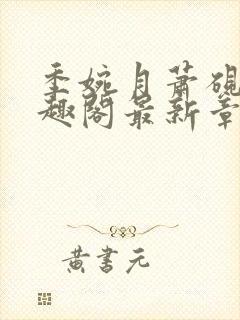 季婉月萧砚
趣阁最新章
黄书元